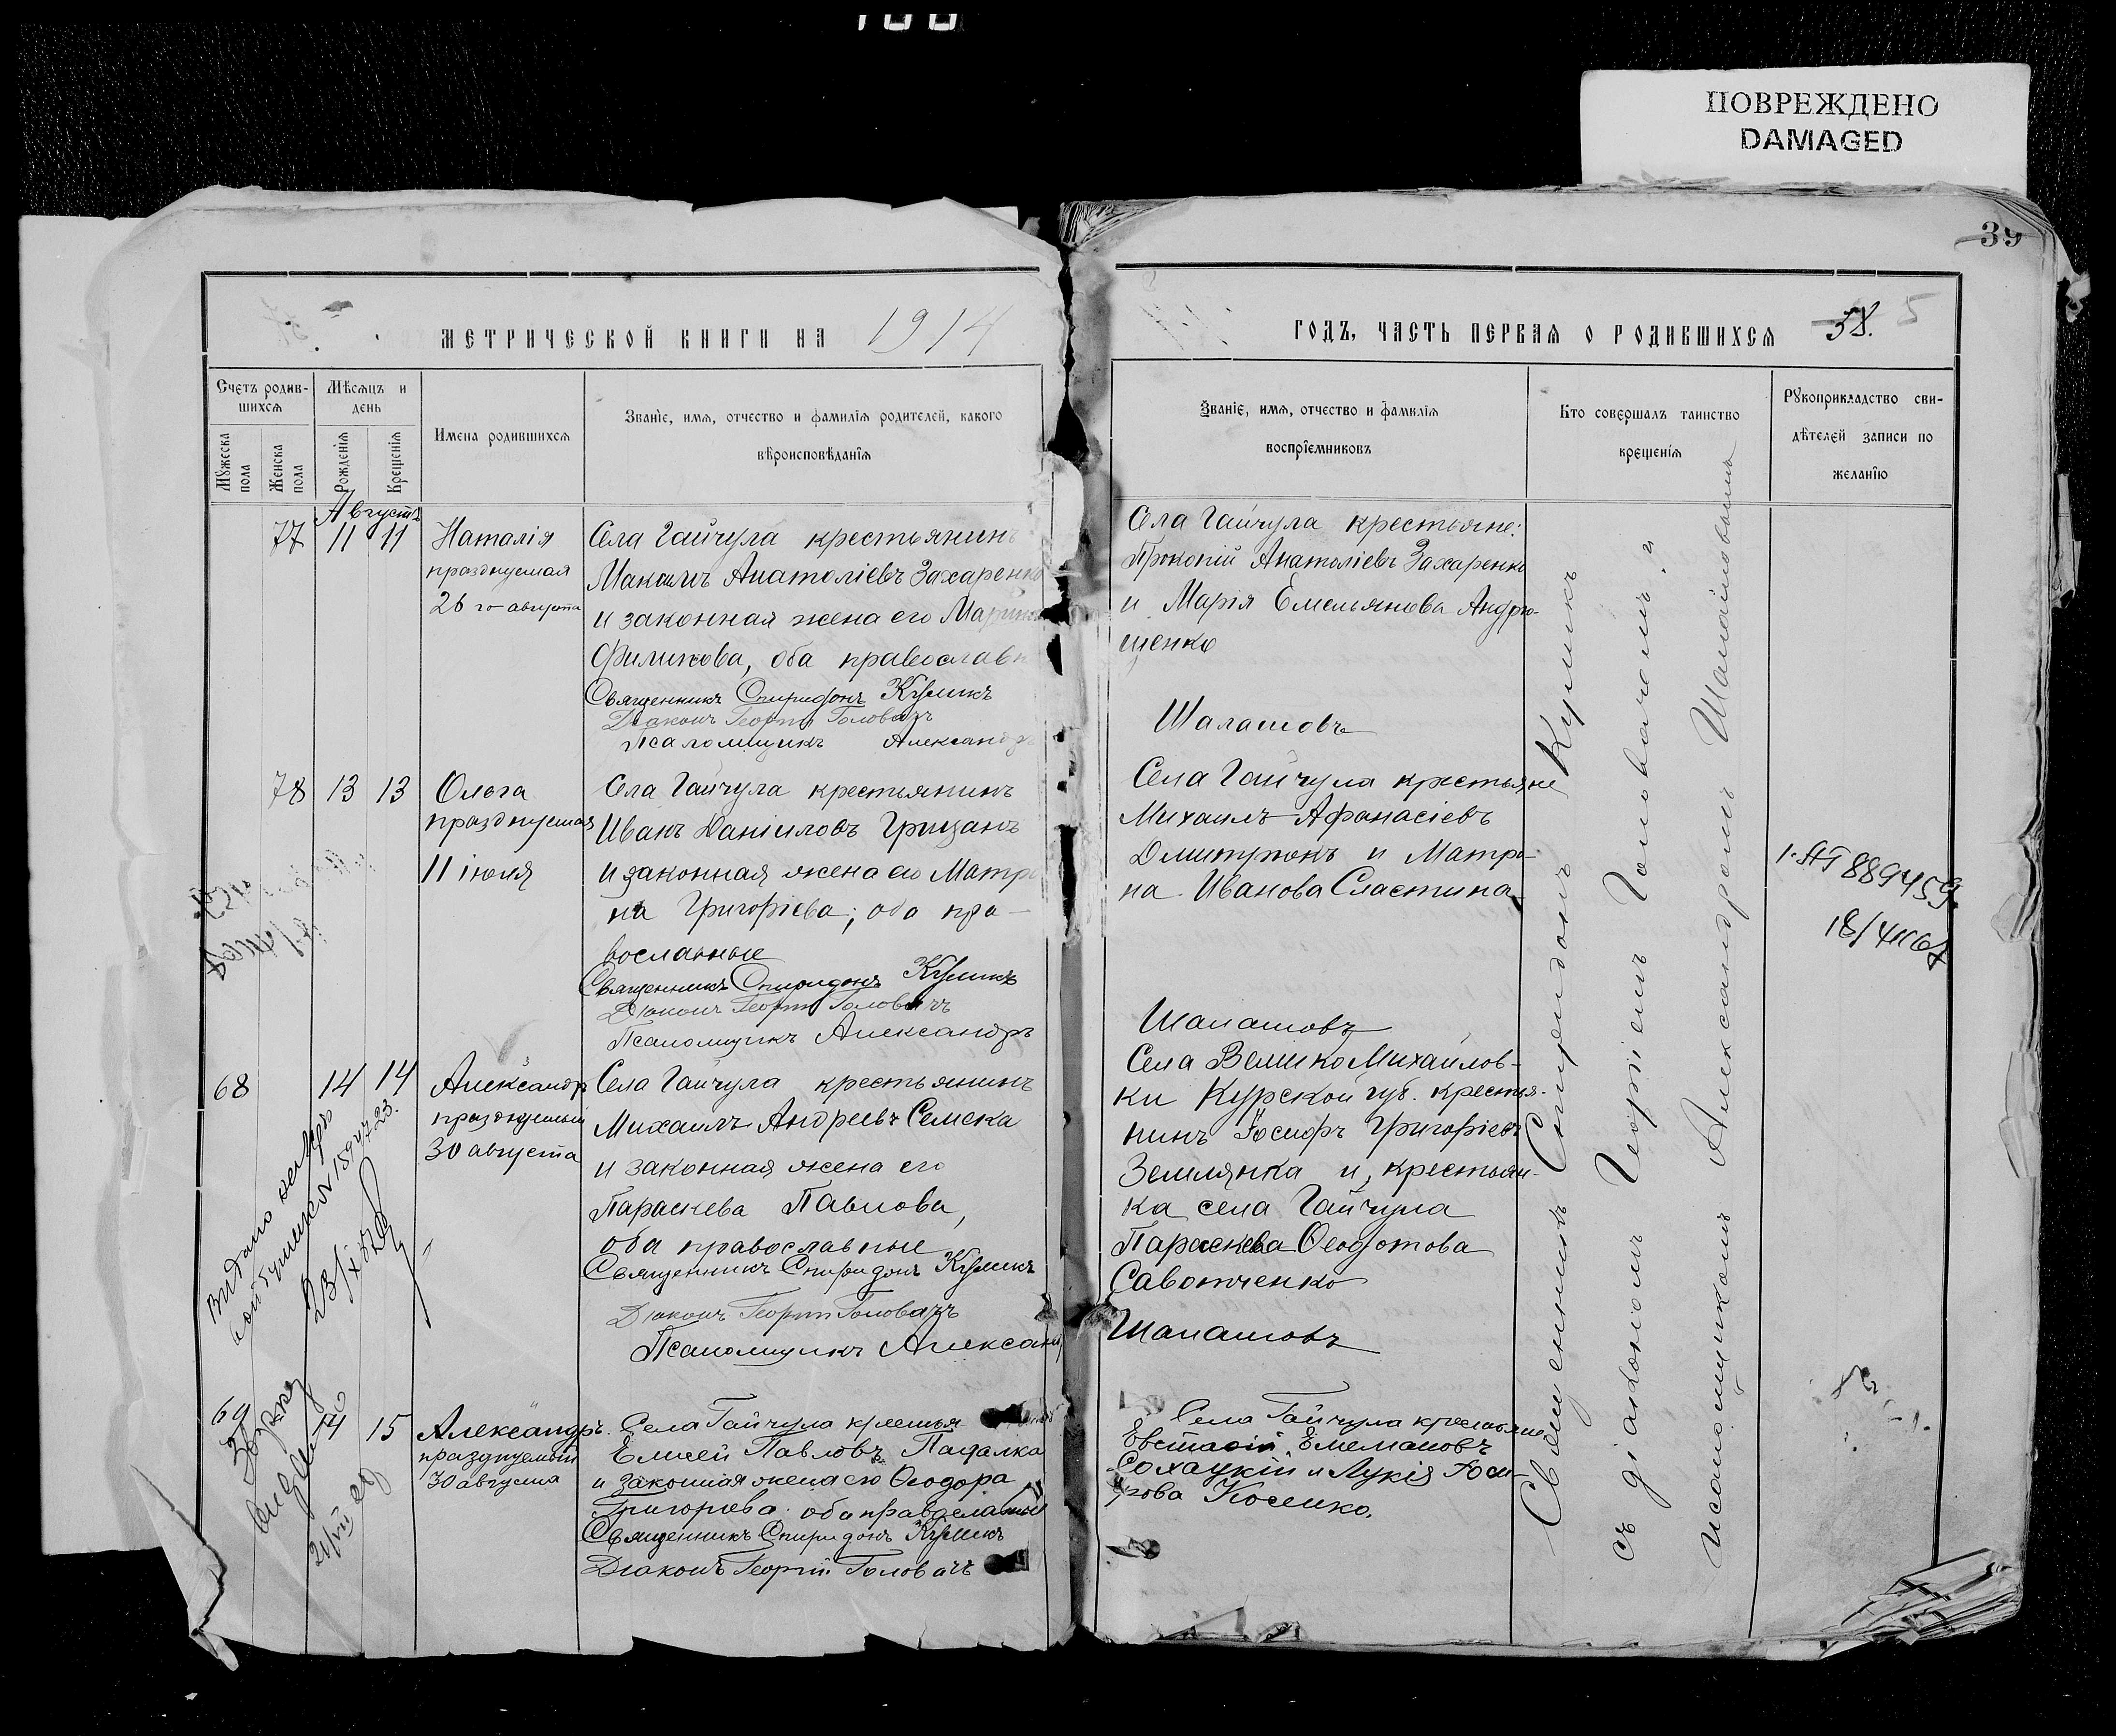 ПОВРЕЖДЕНО
DAMAGED
39
МЕТРИЧЕСКОЙ КНИГИ НА 1914
ГОДЪ, ЧАСТЬ ПЕРВАЯ О РОДИВШИХСЯ 38. 5
Счетъ родив-
шихся
Мужеска пола
Женска пола
Мѣсяцъ и
день
Рожденія
Крещенія
Имена родившихся
Званіе, имя, отчество и фамилія родителей, какого
вѣроисповѣданія
Званіе, имя, отчество и фамилія
воспріемниковъ
Кто совершалъ таинство
крещенія
Рукоприкладство сви-
дѣтелей записи по
желанію
Августъ
77 11 11
Наталія
празднуемая
26 го августа
Села Гайчула крестьянин
Максимъ Анатоліевъ Захаренко
и законная жена его
Филипова, оба православн
Священникъ Спиридонъ Куликъ
Діаконъ Георгій Головачъ
Псаломщикъ Александръ
Села Гайчула крестьяне:
Прокопій Анатоліевъ Захаренко
и Марія Емельянова Андрю-
щенко
Шалашовъ
78 13 13
Ольга
празднуемая
11 іюля
Села Гайчула крестьянинъ
Иванъ Даніиловъ Грицанъ
и законная жена его Матро
на Григоріева; оба пра-
вославные
Священникъ Спиридонъ Куликъ
Діаконъ Георгій Головачъ
Псаломщикъ Александръ
Села Гайчула крестьяне
Михаилъ Афанасіевъ
Димитрюкъ и Матро-
на Иванова Сластина
Шалашовъ
68 14 14
Александр
празднуемый
30 августа
Села Гайчула крестьянинъ
Михаилъ Андреевъ Семека
и законная жена его
Параскева Павлова,
оба православные
Священникъ Спиридонъ Куликъ
Діаконъ Георгій Головачъ
Псаломщикъ Александ
Села Велико Михайлов-
ки Курской губ. крестья-
нинъ Іосифъ Григоріевъ
Землянка и крестьян-
ка села Гайчула
Параскева Ѳеофотова
Савотченко
Шалашовъ
69 14 15
Александръ.
празднуемый
30 августа
Села Гайчула крестья
Елисей Павловъ Падалка
и законная жена его Ѳеодора
Григорьева: оба православные
Священникъ Спиридонъ Куликъ
Діаконъ Георгій Головачъ
Села Гайчула крестьяне
Евстафій
Сохацкій и Лукія Іоси-
фова Косенко.
Священникъ Спиридонъ Куликъ
съ діакономъ Георгіемъ Головачемъ и
псаломщикомъ Александромъ Шалашовымъ
889459
Видано